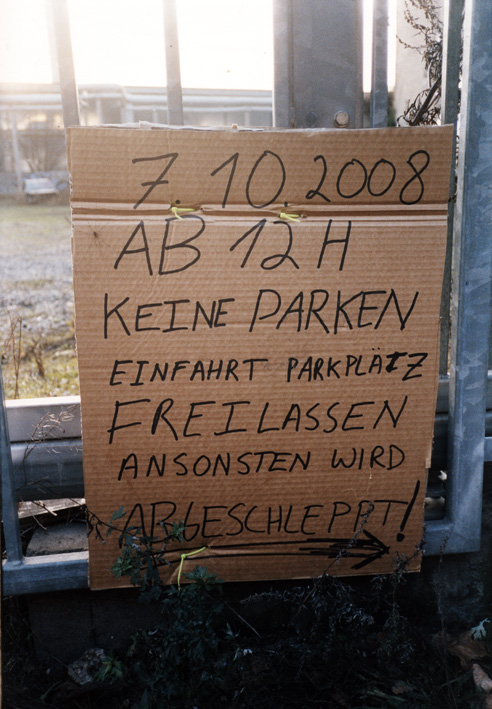 7. 10. 2008
AB 12 H
KEINE PARKEN
EINFAHRT PARKPLATZ
FREILASSEN
ANSONSTEN WIRD
ABGESCHLEPPT!